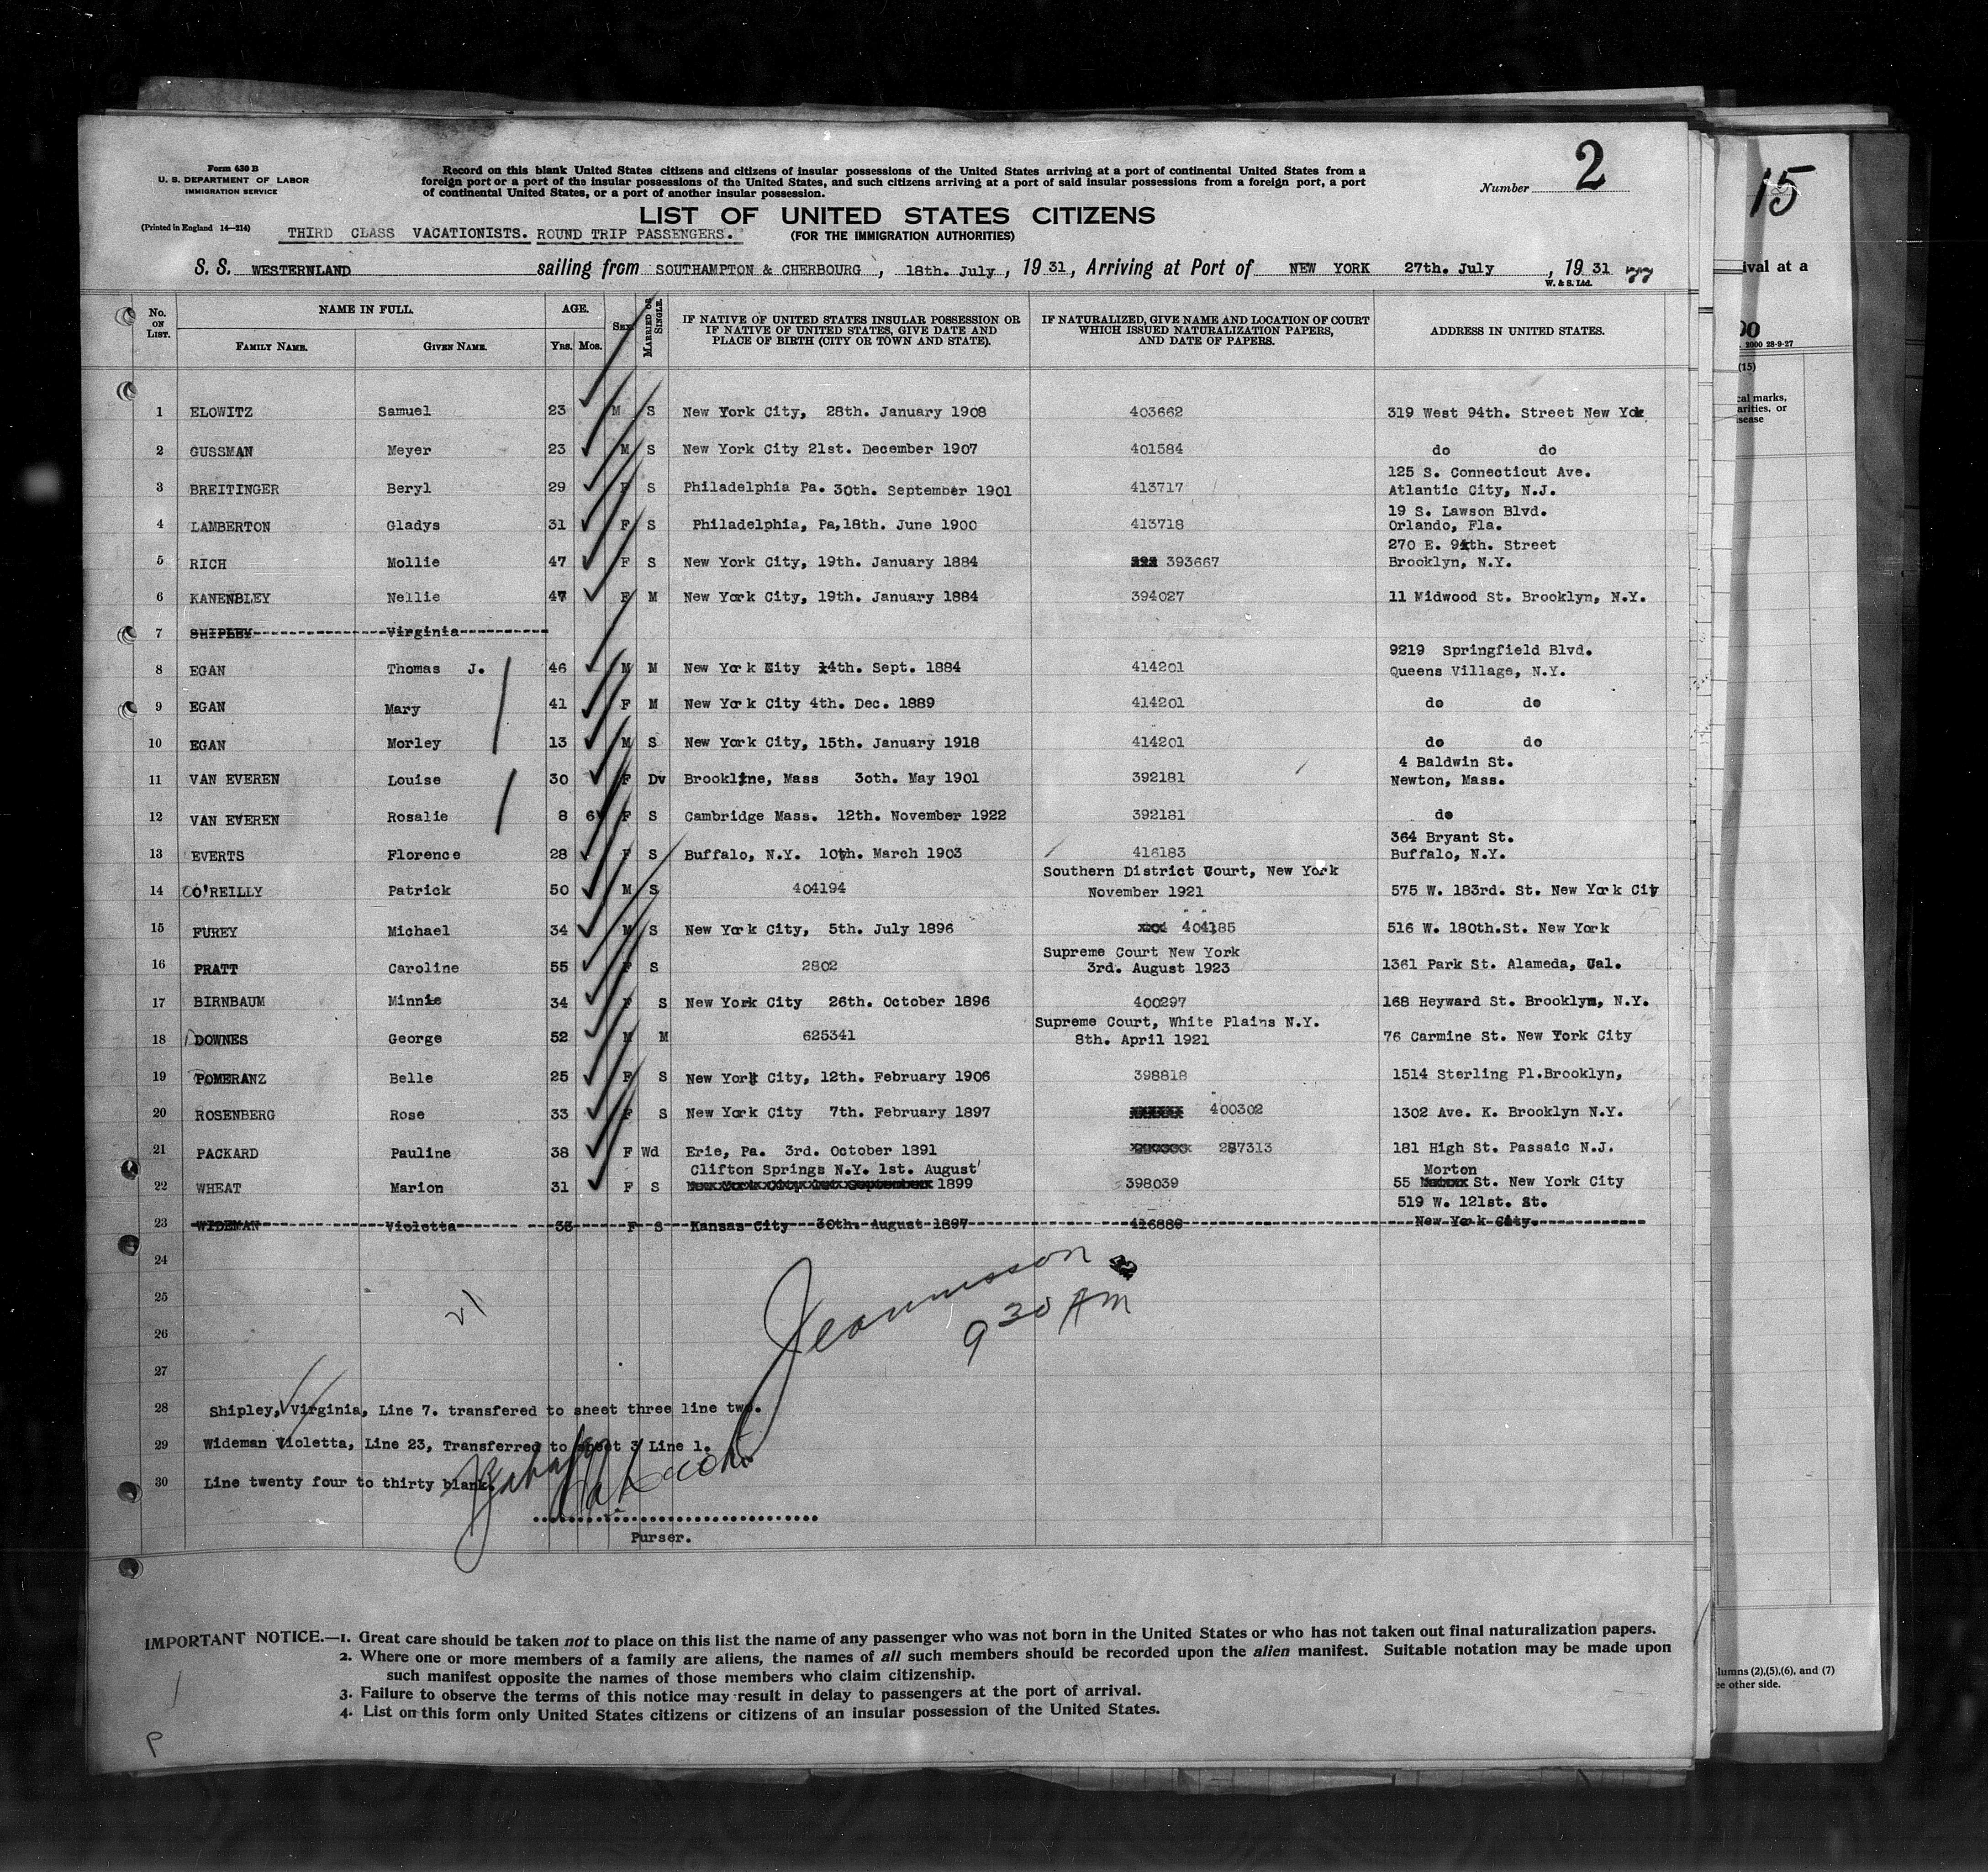 Form 630 B
U. S. DEPARTMENT OF LABOR
IMMIGRATION SERVICE
(Printed in England 14—214)
Record on this blank United States citizens and citizens of insular possessions of the United States arriving at a port of continental United States from a
foreign port or a port of the insular possessions of the United States, and such citizens arriving at a port of said insular possessions from a foreign port, a port
of continental United States, or a port of another insular possession.
Number 2
LIST OF UNITED STATES CITIZENS
THIRD CLASS VACATIONISTS. ROUND TRIP PASSENGERS. (FOR THE IMMIGRATION AUTHORITIES)
S. S. WESTERNLAND sailing from SOUTHAMPTON & CHERBOURG, 18th. July, 1931, Arriving at Port of NEW YORK 27th. July, 1931
W. & S. Ltd.
No. ON LIST. NAME IN FULL. FAMILY NAME. GIVEN NAME. AGE. Yrs. Mos. SEX. MARRIED OR SINGLE. IF NATIVE OF UNITED STATES INSULAR POSSESSION OR IF NATIVE OF UNITED STATES, GIVE DATE AND PLACE OF BIRTH (CITY OR TOWN AND STATE). IF NATURALIZED, GIVE NAME AND LOCATION OF COURT WHICH ISSUED NATURALIZATION PAPERS, AND DATE OF PAPERS. ADDRESS IN UNITED STATES.
1 ELOWITZ Samuel 23 M S New York City, 28th. January 1908 403662 319 West 94th. Street New York
2 GUSSMAN Meyer 23 M S New York City 21st. December 1907 401584 do do
3 BREITINGER Beryl 29 F S Philadelphia Pa. 30th. September 1901 413717 125 S. Connecticut Ave. Atlantic City, N.J.
4 LAMBERTON Gladys 31 F S Philadelphia, Pa, 18th. June 1900 413718 19 S. Lawson Blvd. Orlando, Fla.
5 RICH Mollie 47 F S New York City, 19th. January 1884 393667 270 E. 94th. Street Brooklyn, N.Y.
6 KANENBLEY Nellie 47 F M New York City, 19th. January 1884 394027 11 Midwood St. Brooklyn, N.Y.
7 SHIPLEY Virginia
8 EGAN Thomas J. 46 M M New York City 14th. Sept. 1884 414201 9219 Springfield Blvd. Queens Village, N.Y.
9 EGAN Mary 41 F M New York City 4th. Dec. 1889 414201 do do
10 EGAN Morley 13 M S New York City, 15th. January 1918 414201 do do
11 VAN EVEREN Louise 30 F Dv Brookline, Mass 30th. May 1901 392181 4 Baldwin St. Newton, Mass.
12 VAN EVEREN Rosalie 8 6 F S Cambridge Mass. 12th. November 1922 392181 do
13 EVERTS Florence 28 F S Buffalo, N.Y. 10th. March 1903 416183 364 Bryant St. Buffalo, N.Y.
14 O'REILLY Patrick 50 M S 404194 Southern District Court, New York November 1921 575 W. 183rd. St. New York City
15 FUREY Michael 34 M S New York City, 5th. July 1896 404185 516 W. 180th.St. New York
16 PRATT Caroline 55 F S 2802 Supreme Court New York 3rd. August 1923 1361 Park St. Alameda, Cal.
17 BIRNBAUM Minnie 34 F S New York City 26th. October 1896 400297 168 Heyward St. Brooklyn, N.Y.
18 DOWNES George 52 M M 625341 Supreme Court, White Plains N.Y. 8th. April 1921 76 Carmine St. New York City
19 POMERANZ Belle 25 F S New York City, 12th. February 1906 398818 1514 Sterling Pl.Brooklyn,
20 ROSENBERG Rose 33 F S New York City 7th. February 1897 400302 1302 Ave. K. Brooklyn N.Y.
21 PACKARD Pauline 38 F Wd Erie, Pa. 3rd. October 1891 287313 181 High St. Passaic N.J.
22 WHEAT Marion 31 F S Clifton Springs N.Y. 1st. August New York City 1st September 1899 398039 55 Morton St. New York City
23 WIDEMAN Violetta 33 F S Kansas City 30th. August 1897 416880 519 W. 121st. St. New York City.
24
25
26
27
Jeannusson
9 30 AM
28 Shipley, Virginia, Line 7. transfered to sheet three line two.
29 Wideman Violetta, Line 23, Transferred to sheet 3 Line 1.
30 Line twenty four to thirty blank.
Purser.
IMPORTANT NOTICE.—1. Great care should be taken not to place on this list the name of any passenger who was not born in the United States or who has not taken out final naturalization papers.
2. Where one or more members of a family are aliens, the names of all such members should be recorded upon the alien manifest. Suitable notation may be made upon
such manifest opposite the names of those members who claim citizenship.
3. Failure to observe the terms of this notice may result in delay to passengers at the port of arrival.
4. List on this form only United States citizens or citizens of an insular possession of the United States.
P
15
ival at a
90
2000 28-9-27
(15)
cal marks,
arities, or
isease
lumns (2),(5),(6), and (7)
ee other side.